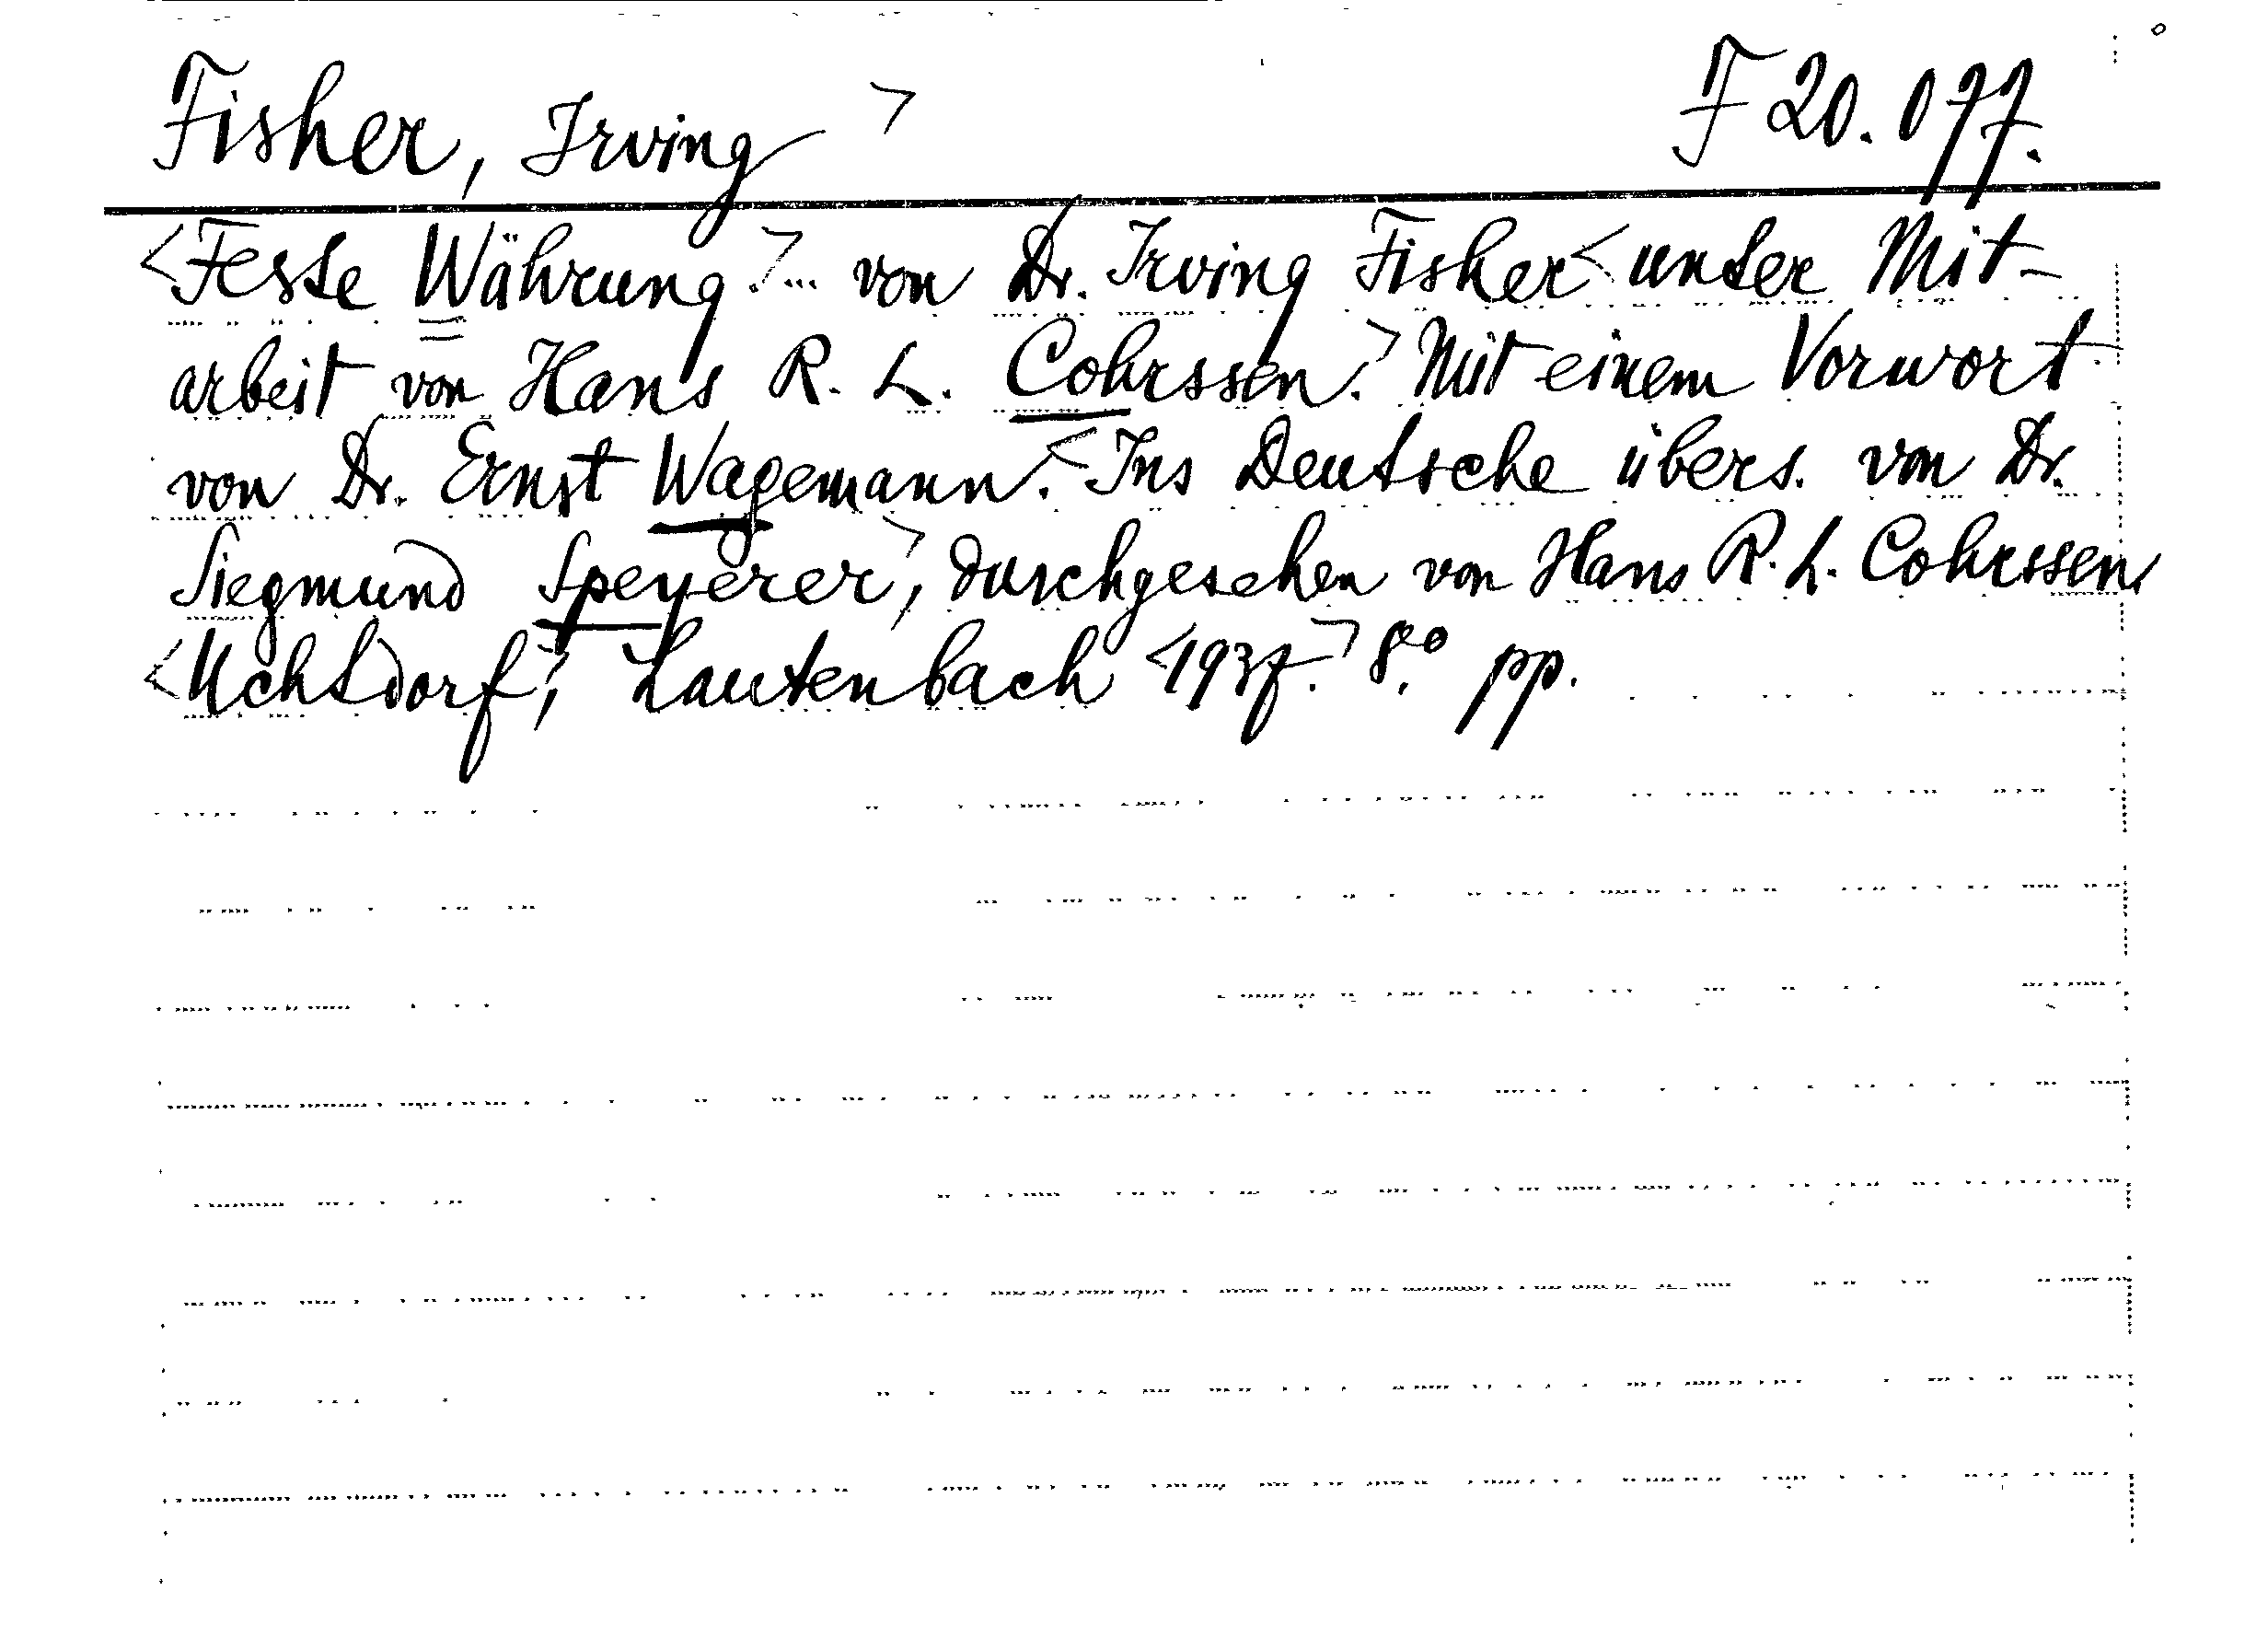 Fisher, Irving > F 20.077.
<Feste Währung.>... von Dr. Irving Fisher < unter Mit-
arbeit von Hans R. L. Cohrssen.> Mit einem Vorwort
von Dr. Ernst Wagemann. <Ins Deutsche übers. von Dr.
Siegmund Speyerer>, durchgesehen von Hans R. L. Cohrssen.
<Uchtdorf>, Lautenbach <1937.> 8°. pp.